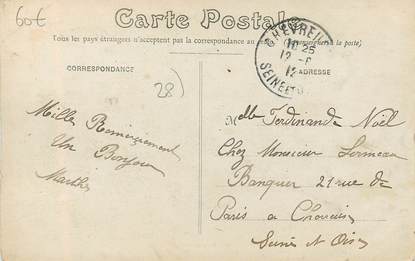 60€
Carte Postale
Tous les pays étrangers n'acceptent pas la correspondance au (se renseigner à la poste)
CORRESPONDANCE
ADRESSE
CHEVREUSE
10 25
12 - 6
12
SEINE ET O
28)
Mille Remerciement
Un Bonjour
Marthe
Melle Ferdinande Noël
Chez Monsieur Lormeau
Banquer 21 rue de
Paris a
Seine et Oise